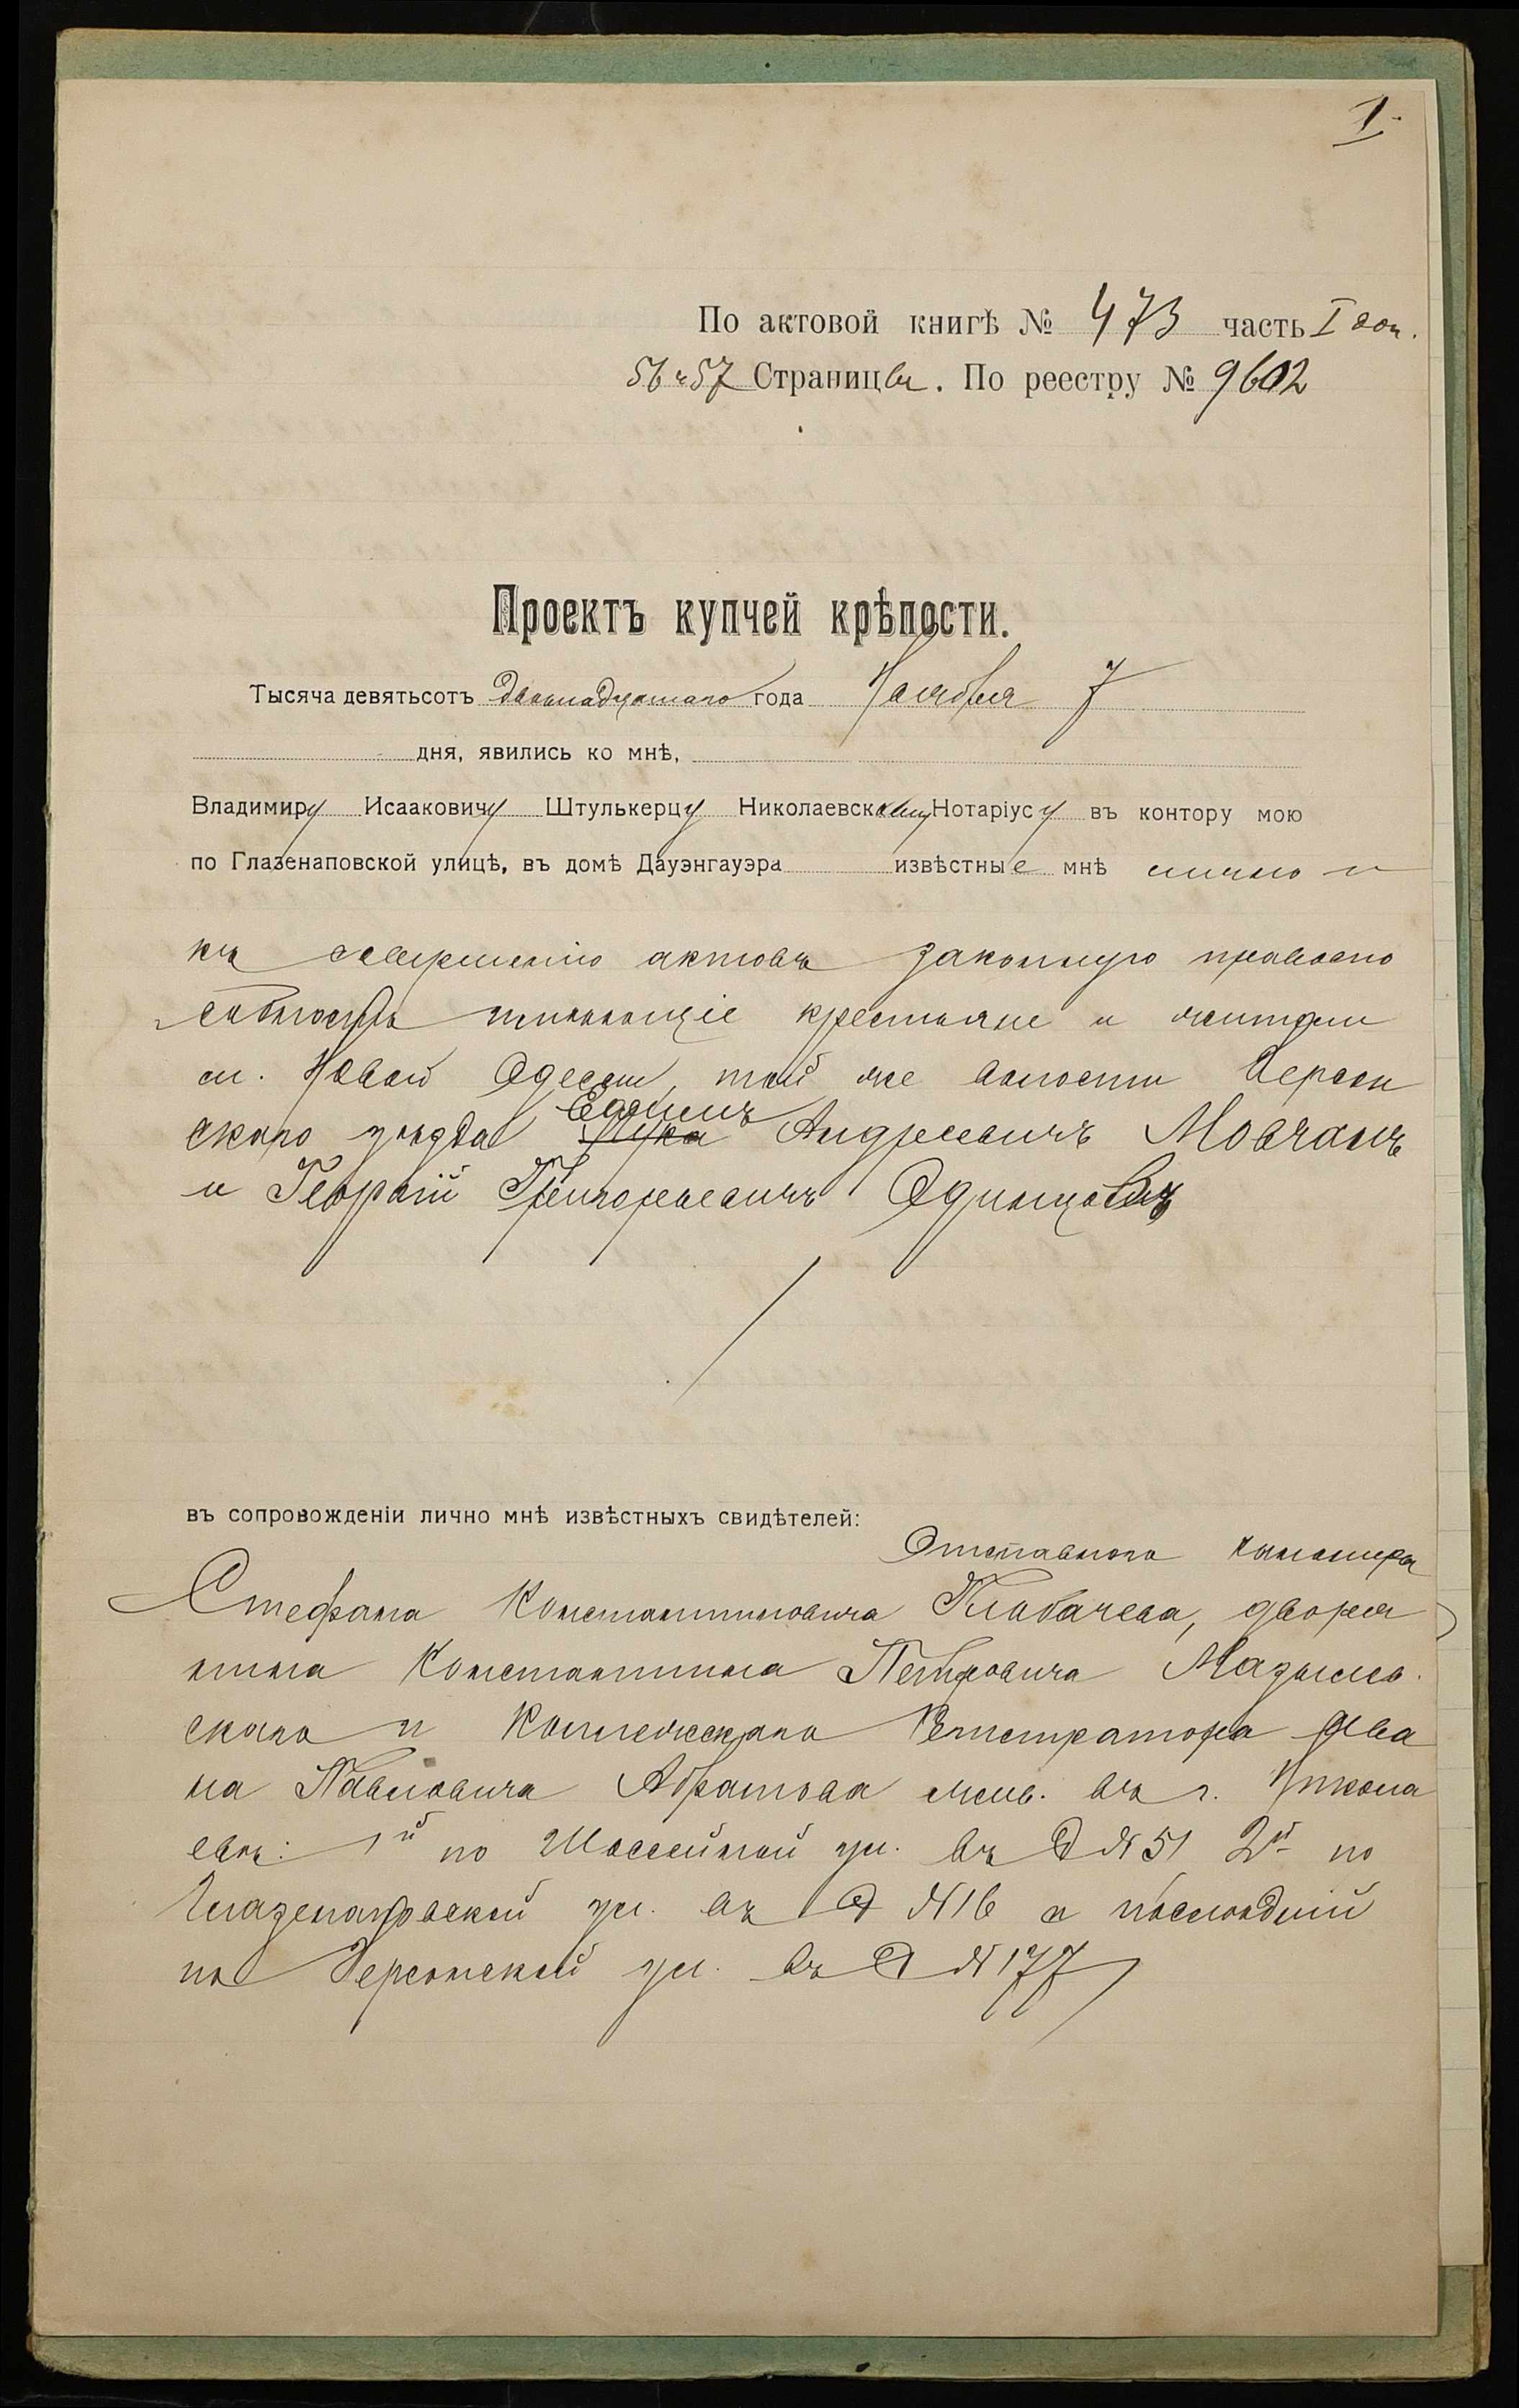 1.
По актовой книгѣ № 473 часть I доп.
56 и 57 Страницы. По реестру № 9602
Проектъ купчей крѣпости.
Тысяча девятьсотъ двѣнадцатаго года Ноября 7
дня, явились ко мнѣ,
Владимиру Исааковичу Штулькерцу Николаевскому Нотаріусу въ контору мою
по Глазенаповской улицѣ, въ домѣ Дауэнгауэра извѣстные мнѣ лично и
къ совершенію актовъ законную правоспо
собность имѣющіе крестьяне и жители
м. Новой Одессы, той же волости Херсон
скаго уѣзда Ефимъ Лука Андреевичъ Мовчанъ
и Георгій Григорьевичъ Одинцовъ
въ сопровожденіи лично мнѣ извѣстныхъ свидѣтелей:
Отставного
Стефана Константиновича Клобачева, дворя
нина Константина Петровича
скаго и Коллежскаго Регистратора Ива
на Павловича Абрамова жив. въ г. Никола
евѣ: 1й по Шоссейной ул. въ д №51 2й по
Глазенаповской ул. въ д №16 а послѣдній
по Херсонской ул. въ д №177